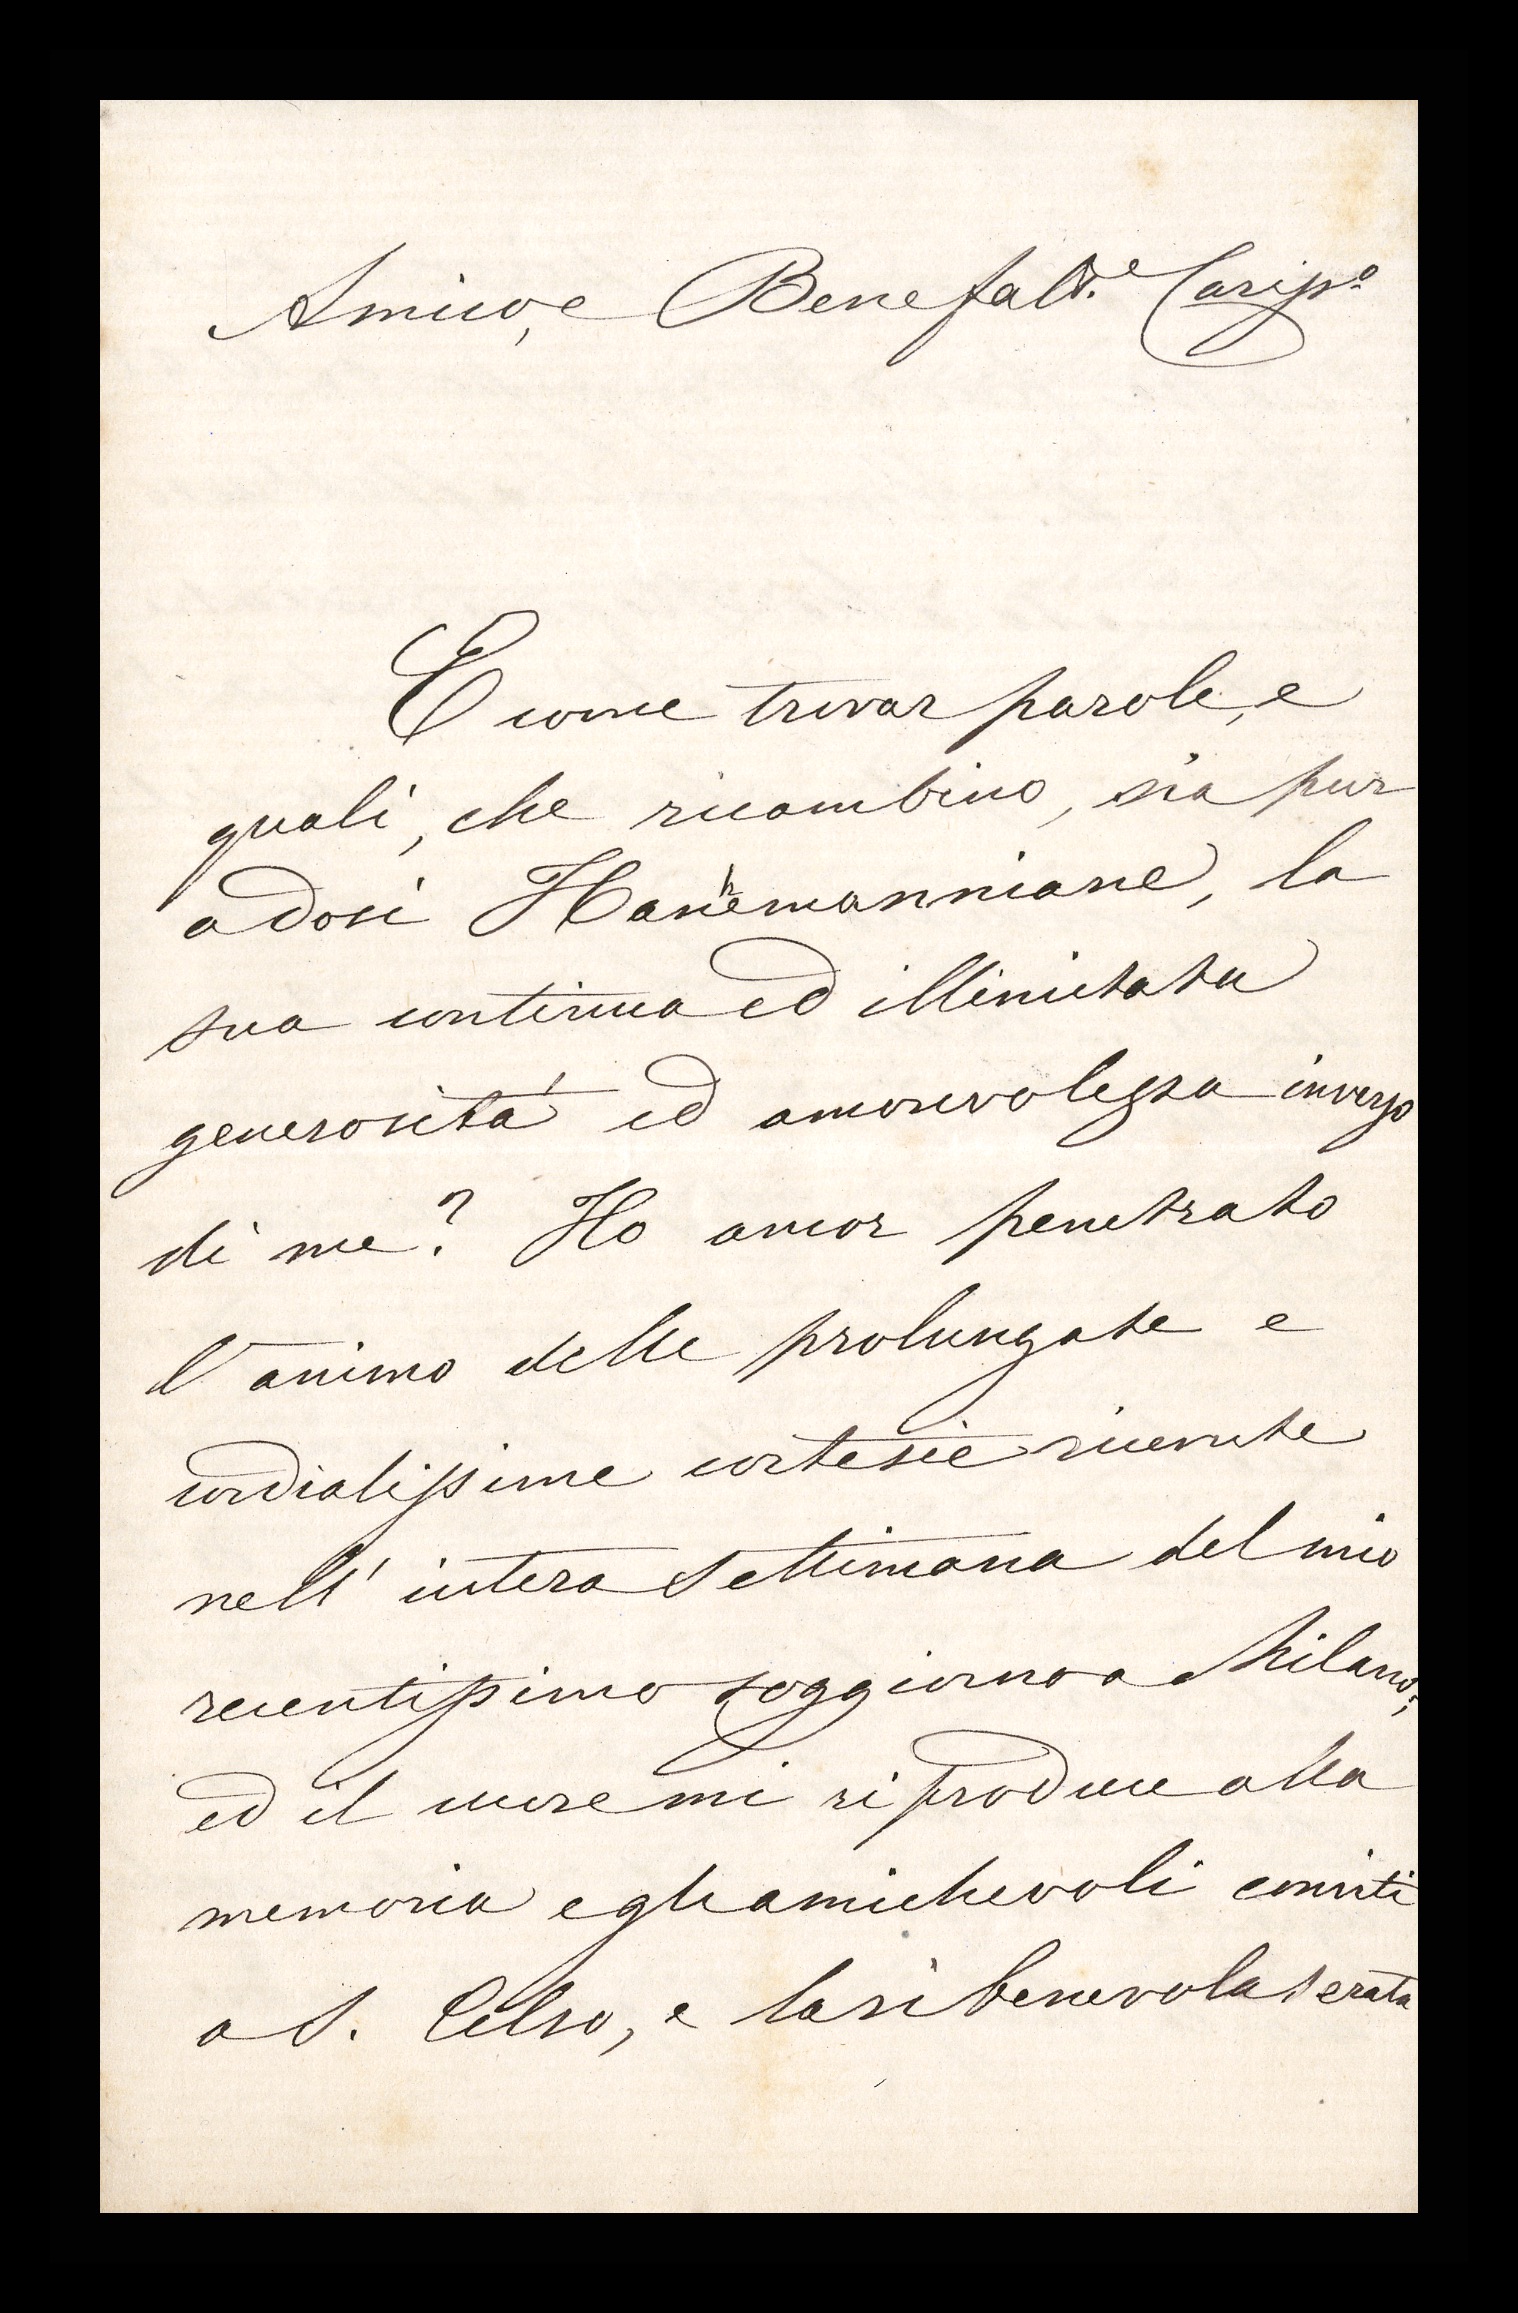 Amico, e Benefatt.e Cariss.o
E come trovar parole, e
quali, che ricambino, sia pur
a dosi Hanhemanniane, la
sua continua ed illimitata
generosità ed amorevolezza inverso
di me? Ho ancor penetrato
l'animo delle prolungate e
cordialissime cortesie ricevute
nell' intera settimana del mio
recentissimo soggiorno a Milano;
ed il cuore mi riproduce alla
memoria e gli amichevoli conviti
a S. Celso, e la sì benevola serata